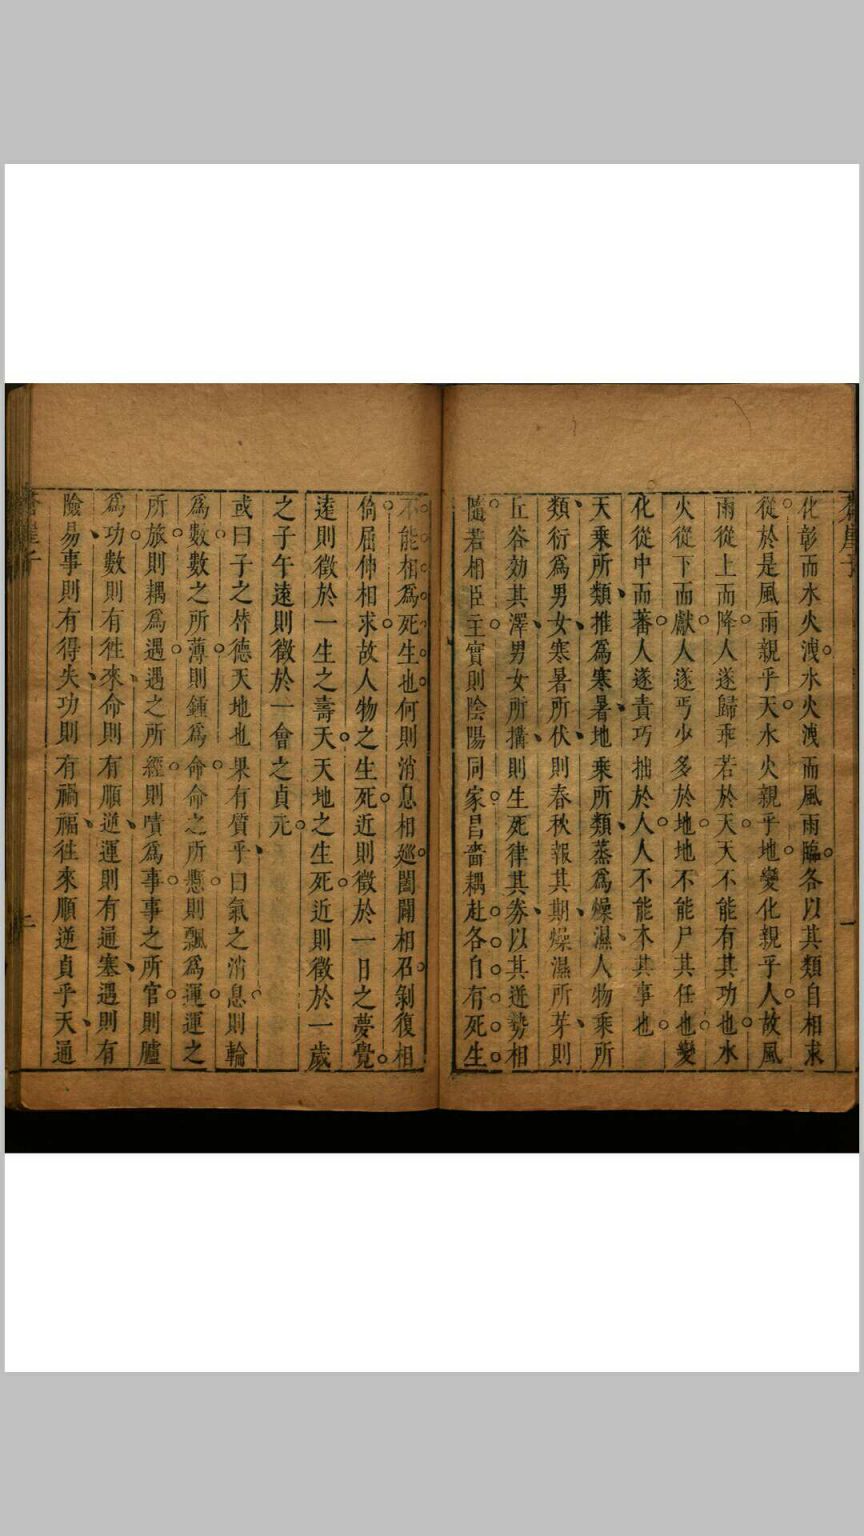 化彰而水火洩水火洩而風雨臨各以其類自相求
從於是風雨親乎天水火親乎地變化親乎人故風
雨從上而降人遂歸乖若於天天不能有其功也水
火從下而獻人遂丐少多於地地不能尸其任也變
化從中而蕃人遂責巧拙於人人不能本其事也
天乘所類推為寒暑地乘所類蒸為燥濕人物乘所
類衍為男女寒暑所伏則春秋報其期燥濕所芽則
丘谷効其澤男女所搆則生死律其券以其遞勢相
隨若相臣主實則陰陽同家昌嗇耦赴各自有死生
不能相為死生也何則消息相巡闔闢相召剝復相
倚屈伸相求故人物之生死近則徵於一日之夢覺
遠則徵於一生之壽夭天地之生死近則徵於一歲
之子午遠則徵於一會之貞元
或曰子之替德天地也果有質乎曰氣之消息則輪
為數數之所薄則鍾為命命之所懸則飄為運運之
所旅則耦為遇遇之所經則嘖為事事之所官則臚
為功數則有徃來命則有順逆運則有通塞遇則有
險易事則有得失功則有禍福徃來順逆貞乎天通